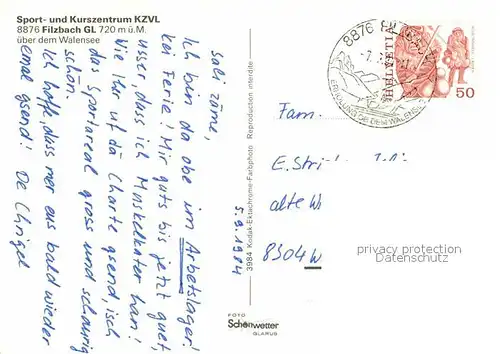 Sport- und Kurszentrum KZVL
8876 Filzbach GL 720 m ü.M.
über dem Walensee
Sali zäme,
Ich bin da obe im Arbetslager!
Kei Ferie! Mir gahts bis jetzt guet,
usser, dass ich Muskelkater han!
Wie Ihr uf dä Charte gsend, isch
das Sportareal gross und schaurig
schön.
Ich hoffe, dass mer eus bald wieder
emal gsend! De Chrigel
5.9.1984
3984 Kodak-Ektachrome-Farbphoto Reproduction interdite
FOTO
Schönwetter
GLARUS
8876
ERHOLUNG OB DEM WALENSEE
HELVETIA
50
Fam.
E.
alte
8304 W
privacy protection
Datenschutz